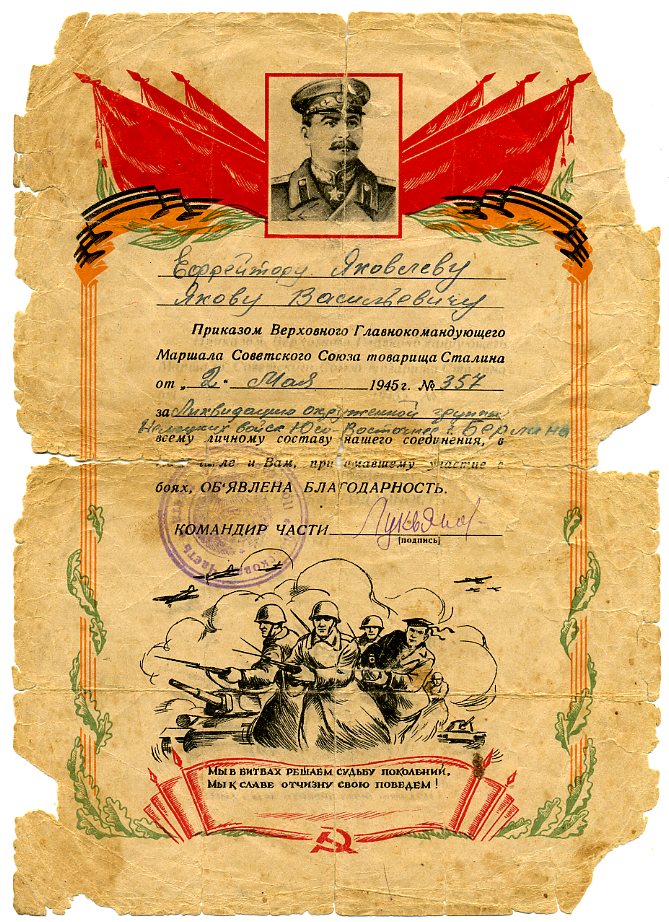 Ефрейтору Яковлеву
Якову Васильевичу
Приказом Верховного Главнокомандующего
Маршала Советского Союза товарища Сталина
от „2" Мая 1945 г. № 357
за Ликвидацию окруженной группы
Немецких войск Юго-Восточнее Берлина
всему личному составу нашего соединения, в
и Вам, принимавшему участие в
боях, ОБ'ЯВЛЕНА БЛАГОДАРНОСТЬ.
КОМАНДИР ЧАСТИ
[подпись]
часть
МЫ В БИТВАХ РЕШАЕМ СУДЬБУ ПОКОЛЕНИЙ,
МЫ К СЛАВЕ ОТЧИЗНУ СВОЮ ПОВЕДЕМ!